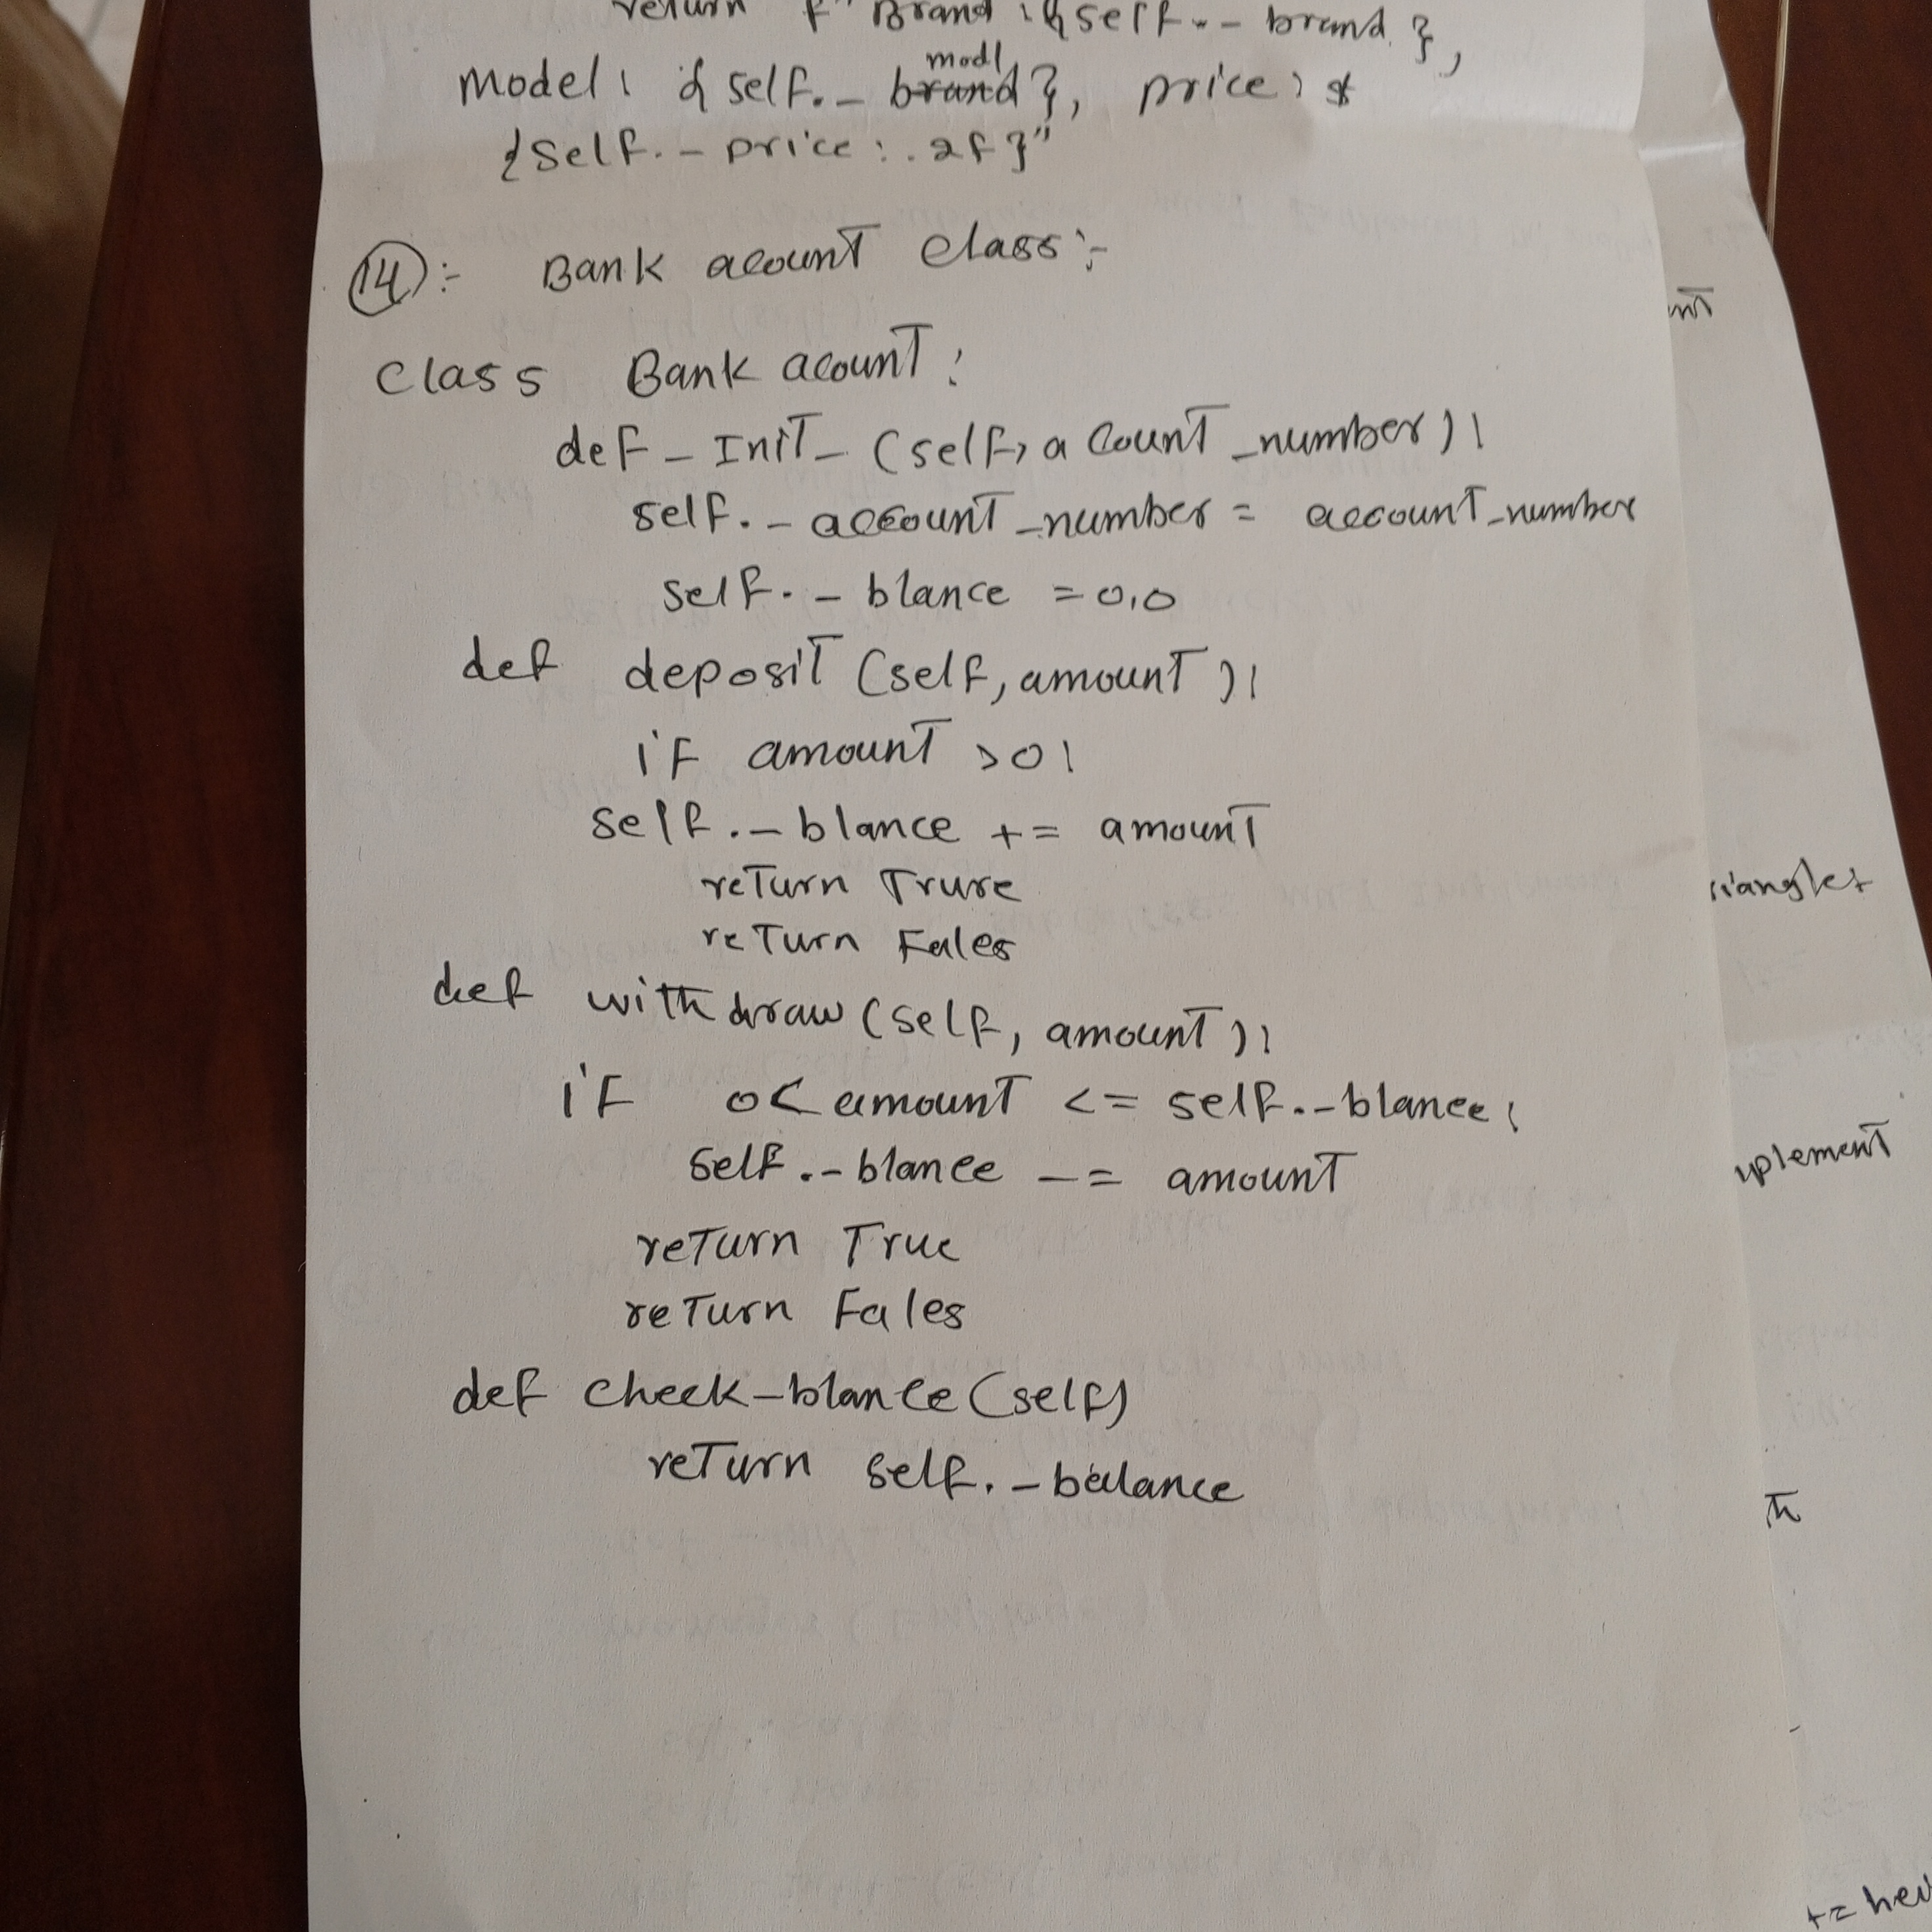 return f" Brand : {self._brand },
Model : {self._ brand modl}, price : $
{self._price : .2f}"
14 :- Bank acount class :-
class Bank acount :
def _ Init _ (self, a count _number) :
self._ account _number = account_number
self._ blance = 0.0
def deposit (self, amount ) :
if amount > 0 :
self._ blance += amount
return Trure
return Fales
def withdraw (self, amount ) :
if 0 < amount <= self._blance :
self._blance -= amount
return True
return Fales
def check_blance (self)
return self._balance
nt
riangles
uplement
th
+= hei